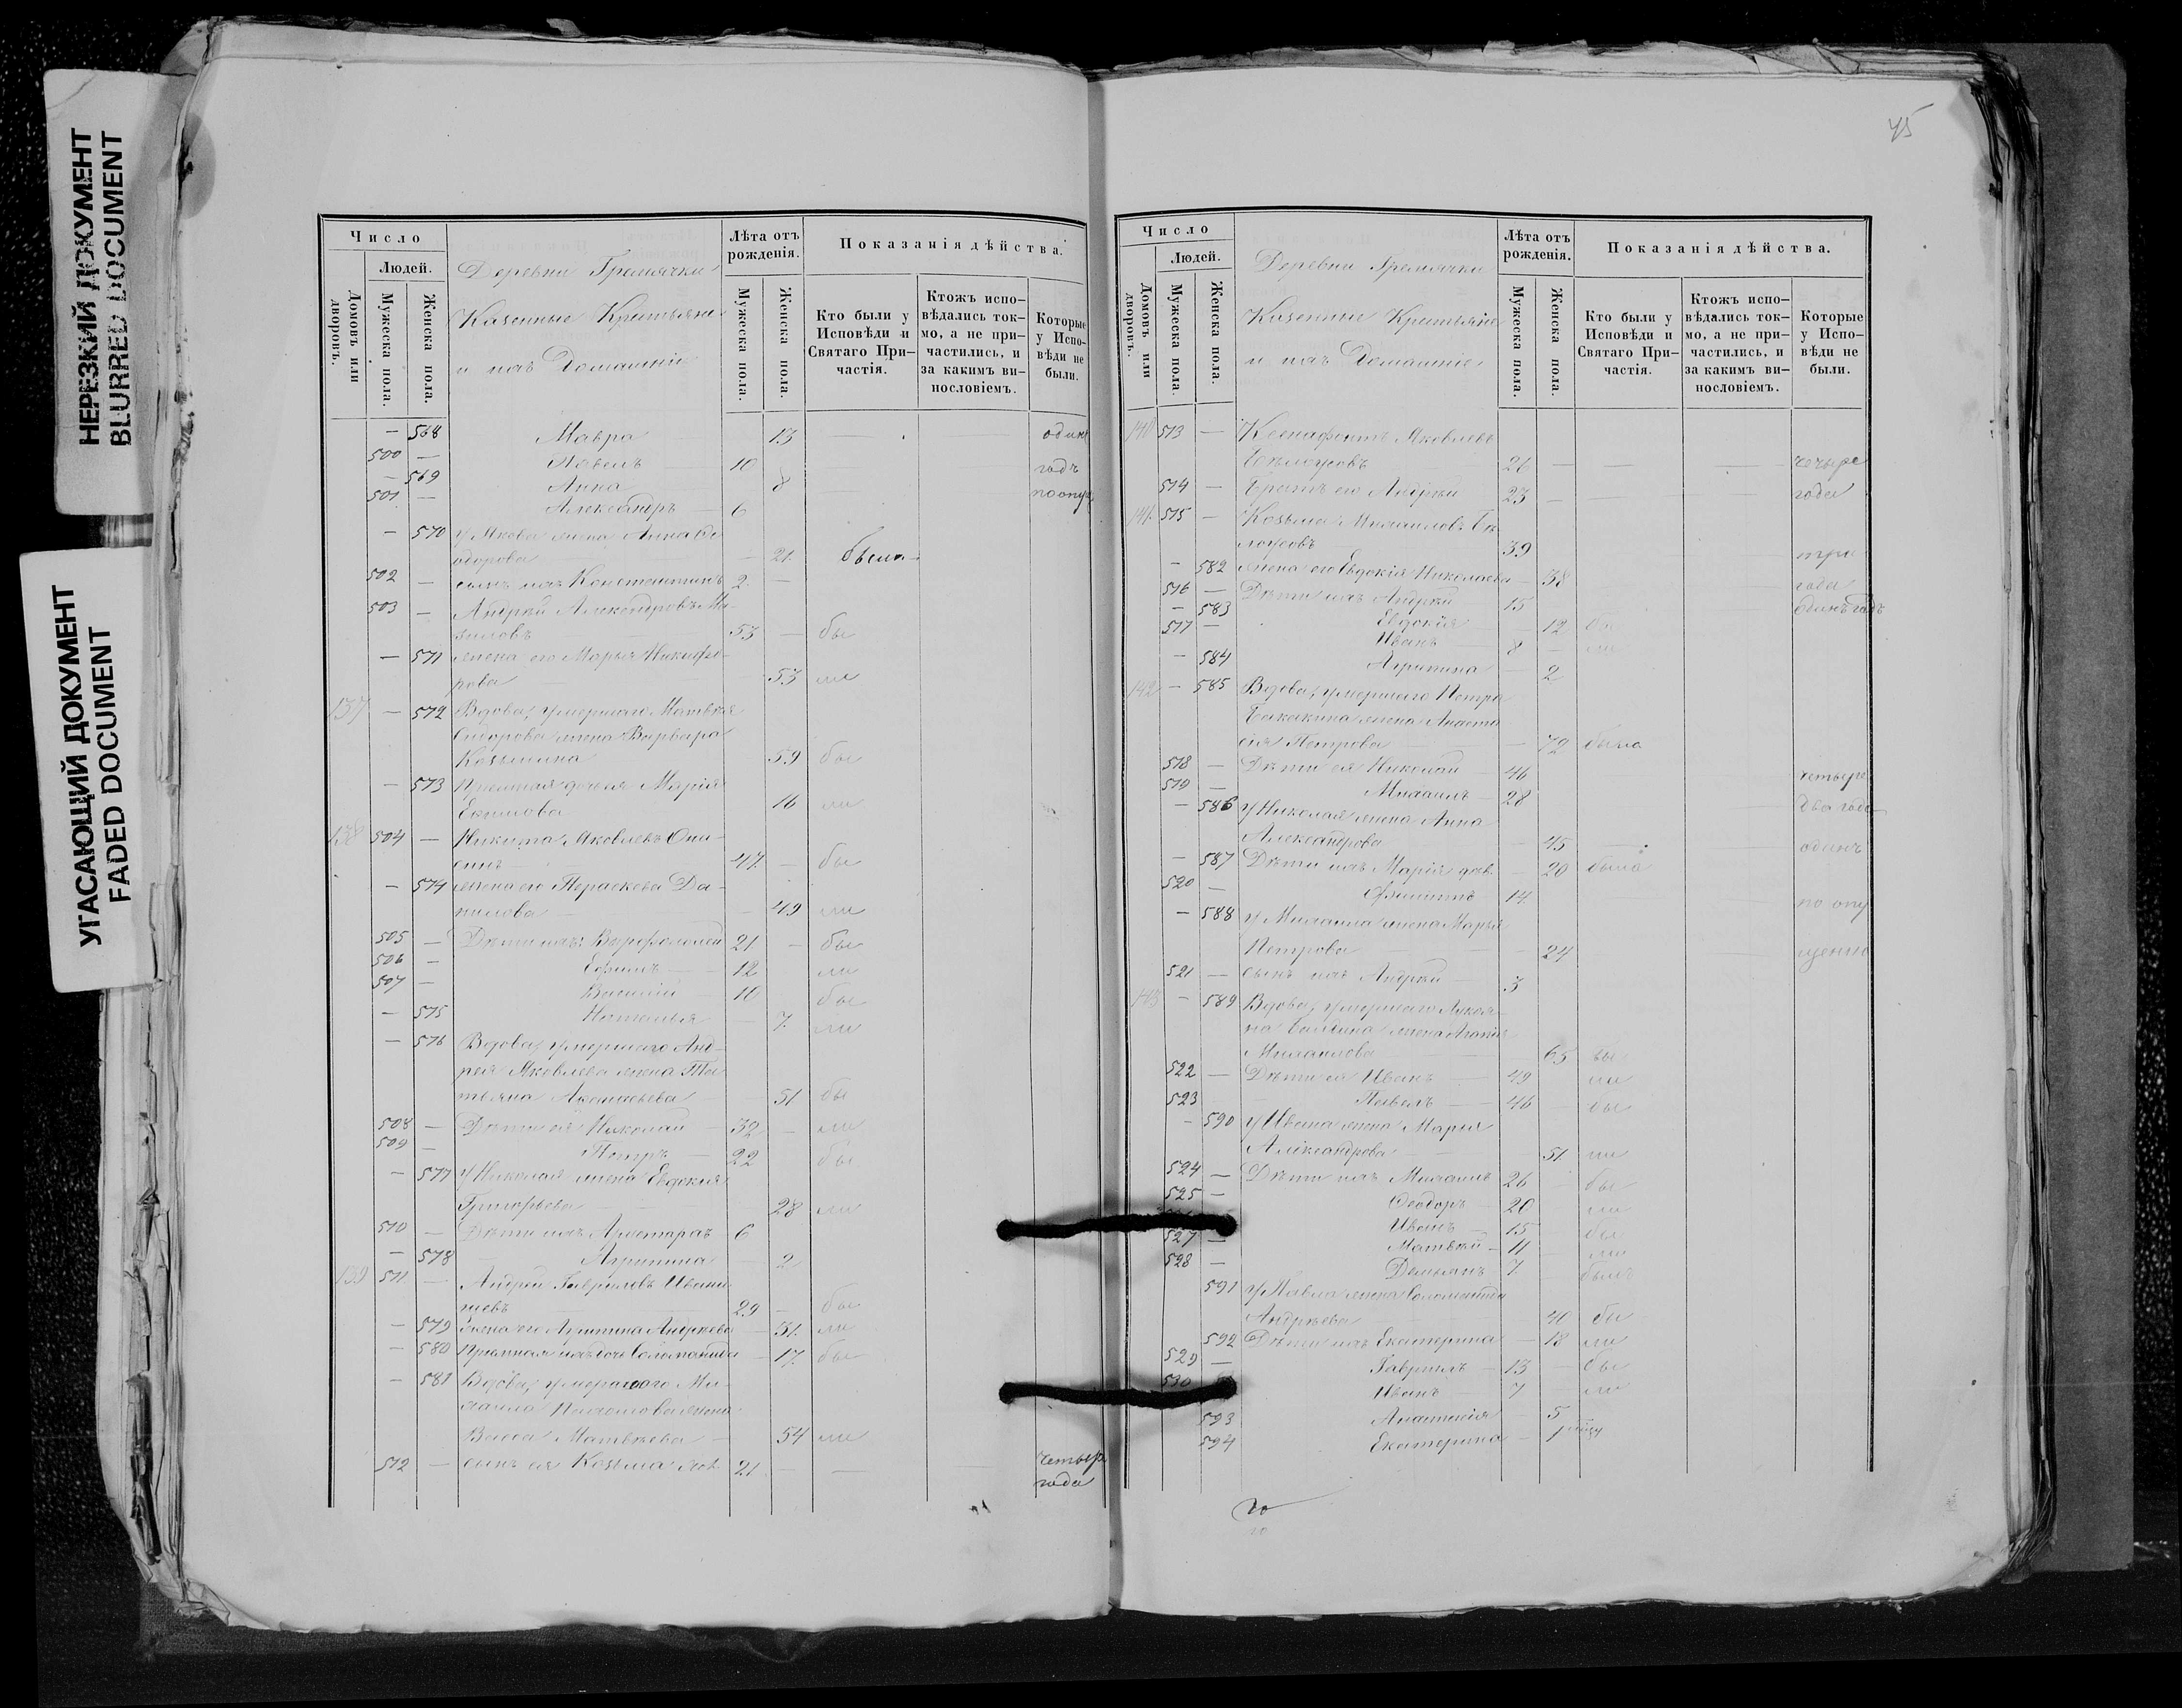 НЕРЕЗКИЙ ДОКУМЕНТ
BLURRED DOCUMENT
УГАСАЮЩИЙ ДОКУМЕНТ
FADED DOCUMENT
Число
Людей.
Домовъ или дворовъ.
Мужеска пола.
Женска пола.
Деревни Гремячки
Казенные Крестьяне
и ихъ Домашніе
Лѣта отъ рожденія.
Мужеска пола.
Женска пола.
Показанія дѣйства.
Кто были у Исповѣди и Святаго Причастія.
Ктожъ исповѣдались токмо, а не причастились, и за какимъ винословіемъ.
Которые у Исповѣди не были.
— 568 Мавра 13 — — одинъ
500 — Павелъ 10 годъ
— 569 Анна 8
501 — Александръ — 6
— 570 у Якова жена Анна Ѳе-
одорова — 21. была
502 — сынъ ихъ Константинъ 2. —
503 — Андрей Александровъ
53 — бы
— 571 жена его Марья Никифо-
рова — 53 ли
137 — 572 Вдова, умершаго Матвея
Сидорова жена Варвара
Козьмина 59 бы
— 573 Приемная дочь Марія
Ефимова 16 ли
138 504 — Никита Яковлевъ
47. — бы
— 574 жена его Параскева Да-
нилова — 49 ли
505 — Дѣти ихъ: Варфоломей 21. — бы
506 — Ефимъ — 12 ли
507 — Василій — 10 бы
— 575 Наталья — 7. ли
— 576 Вдова, умершаго Анд-
рея Яковлева жена Та-
тьяна 51 бы
508 — Дѣти ея Николай — 32 — ли
509 — Петръ — 22 бы
— 577 у Николая жена Евдокія
Григорьева — 28 ли
510 — Дѣти ихъ 6
— 578 Агрипина — 2
139 511 — Андрей Гавриловъ Ивани-
29 — бы
— 579 жена его Агрипина Андреева — 31. ли
— 580 Приемная ихъ дочь Соломонида — 17. бы
— 581 Вдова, умершаго Ми-
хаила жена
Васса Матвѣева — 54 ли
512 — сынъ ея Козьма 21. — — — четыре
года
45
Число
Людей.
Домовъ или дворовъ.
Мужеска пола.
Женска пола.
Деревни Гремячки
Казенные Крестьяне
и ихъ Домашніе
Лѣта отъ рожденія.
Мужеска пола.
Женска пола.
Показанія дѣйства.
Кто были у Исповѣди и Святаго Причастія.
Ктожъ исповѣдались токмо, а не причастились, и за какимъ винословіемъ.
Которые у Исповѣди не были.
140 513 — Ксенофонтъ Яковлевъ
Бѣлоусовъ 26 — — — четыре
514 — Братъ его Андрей 23 — — — года
141. 515 — Козьма Михайловъ Бѣ-
лоусовъ 39 три
— 582 жена его Евдокія Николаева — 38 года
516 — Дѣти ихъ Андрей 15 Одинъ годъ
— 583 Евдокія — 12 бы
517 — Иванъ — 8 — ли
— 584 Агрипина — 2
142 — 585 Вдова, умершаго Петра
жена Анаста-
сія Петрова — 72 была
518 — Дѣти ея Николай — 46 четыре
519 — Михаилъ — 28
— 586 у Николая жена Анна два года
Александрова — 45 — одинъ
— 587 Дѣти ихъ Марія — 20 была
520 — Филиппъ 14
— 588 у Михаила жена Марья по опу
Петрова — 24 щенію
521 — сынъ ихъ Андрей — 3
143 — 589 Вдова, умершаго Лукья-
на жена Агафія
Михаилова — 65 бы
522 — Дѣти ея Иванъ — 49 ли
523 Павелъ — 46 — бы
— 590 у Ивана жена Марья
Александрова — 51. ли
524 — Дѣти ихъ Михаилъ 26 — бы
525 — Ѳеодоръ — 20 ли
Иванъ — 15 бы
527 — Матвѣй — 11 — ли
528 — Демьянъ 7. былъ
591 у Павла жена Соломонида
Андрѣева — 40 бы
592 Дѣти ихъ Екатерина — 18 ли
529 — Гаврилъ — 13 — бы
530 Иванъ — 7 — ли
593 Анастасія — 5
594 Екатерина — 1